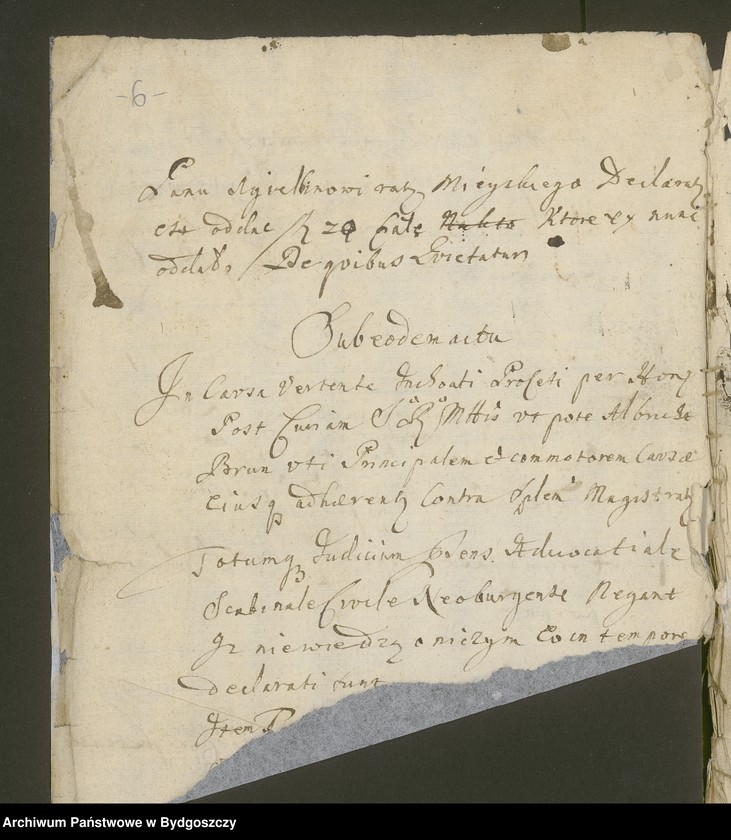 -6-
Panu Mieyskiego Declarat
oddać 20 Nakło Ktore nunc
oddał, De quibus Quietatur
Sub eodem actu
In Causa Vertente Inchoati per
Post Curiam S R Mttis vt pote Albricht
Brun vti Principalem et commotorem Causæ
Eiusq adhærent Contra Magistrat
Totumq Iudicium Advocatiale
Scabinale Civile Neoburgense Negant
Iz niewiedzą o niczym Eo in tempore
declarati sunt
Item P
Archiwum Państwowe w Bydgoszczy